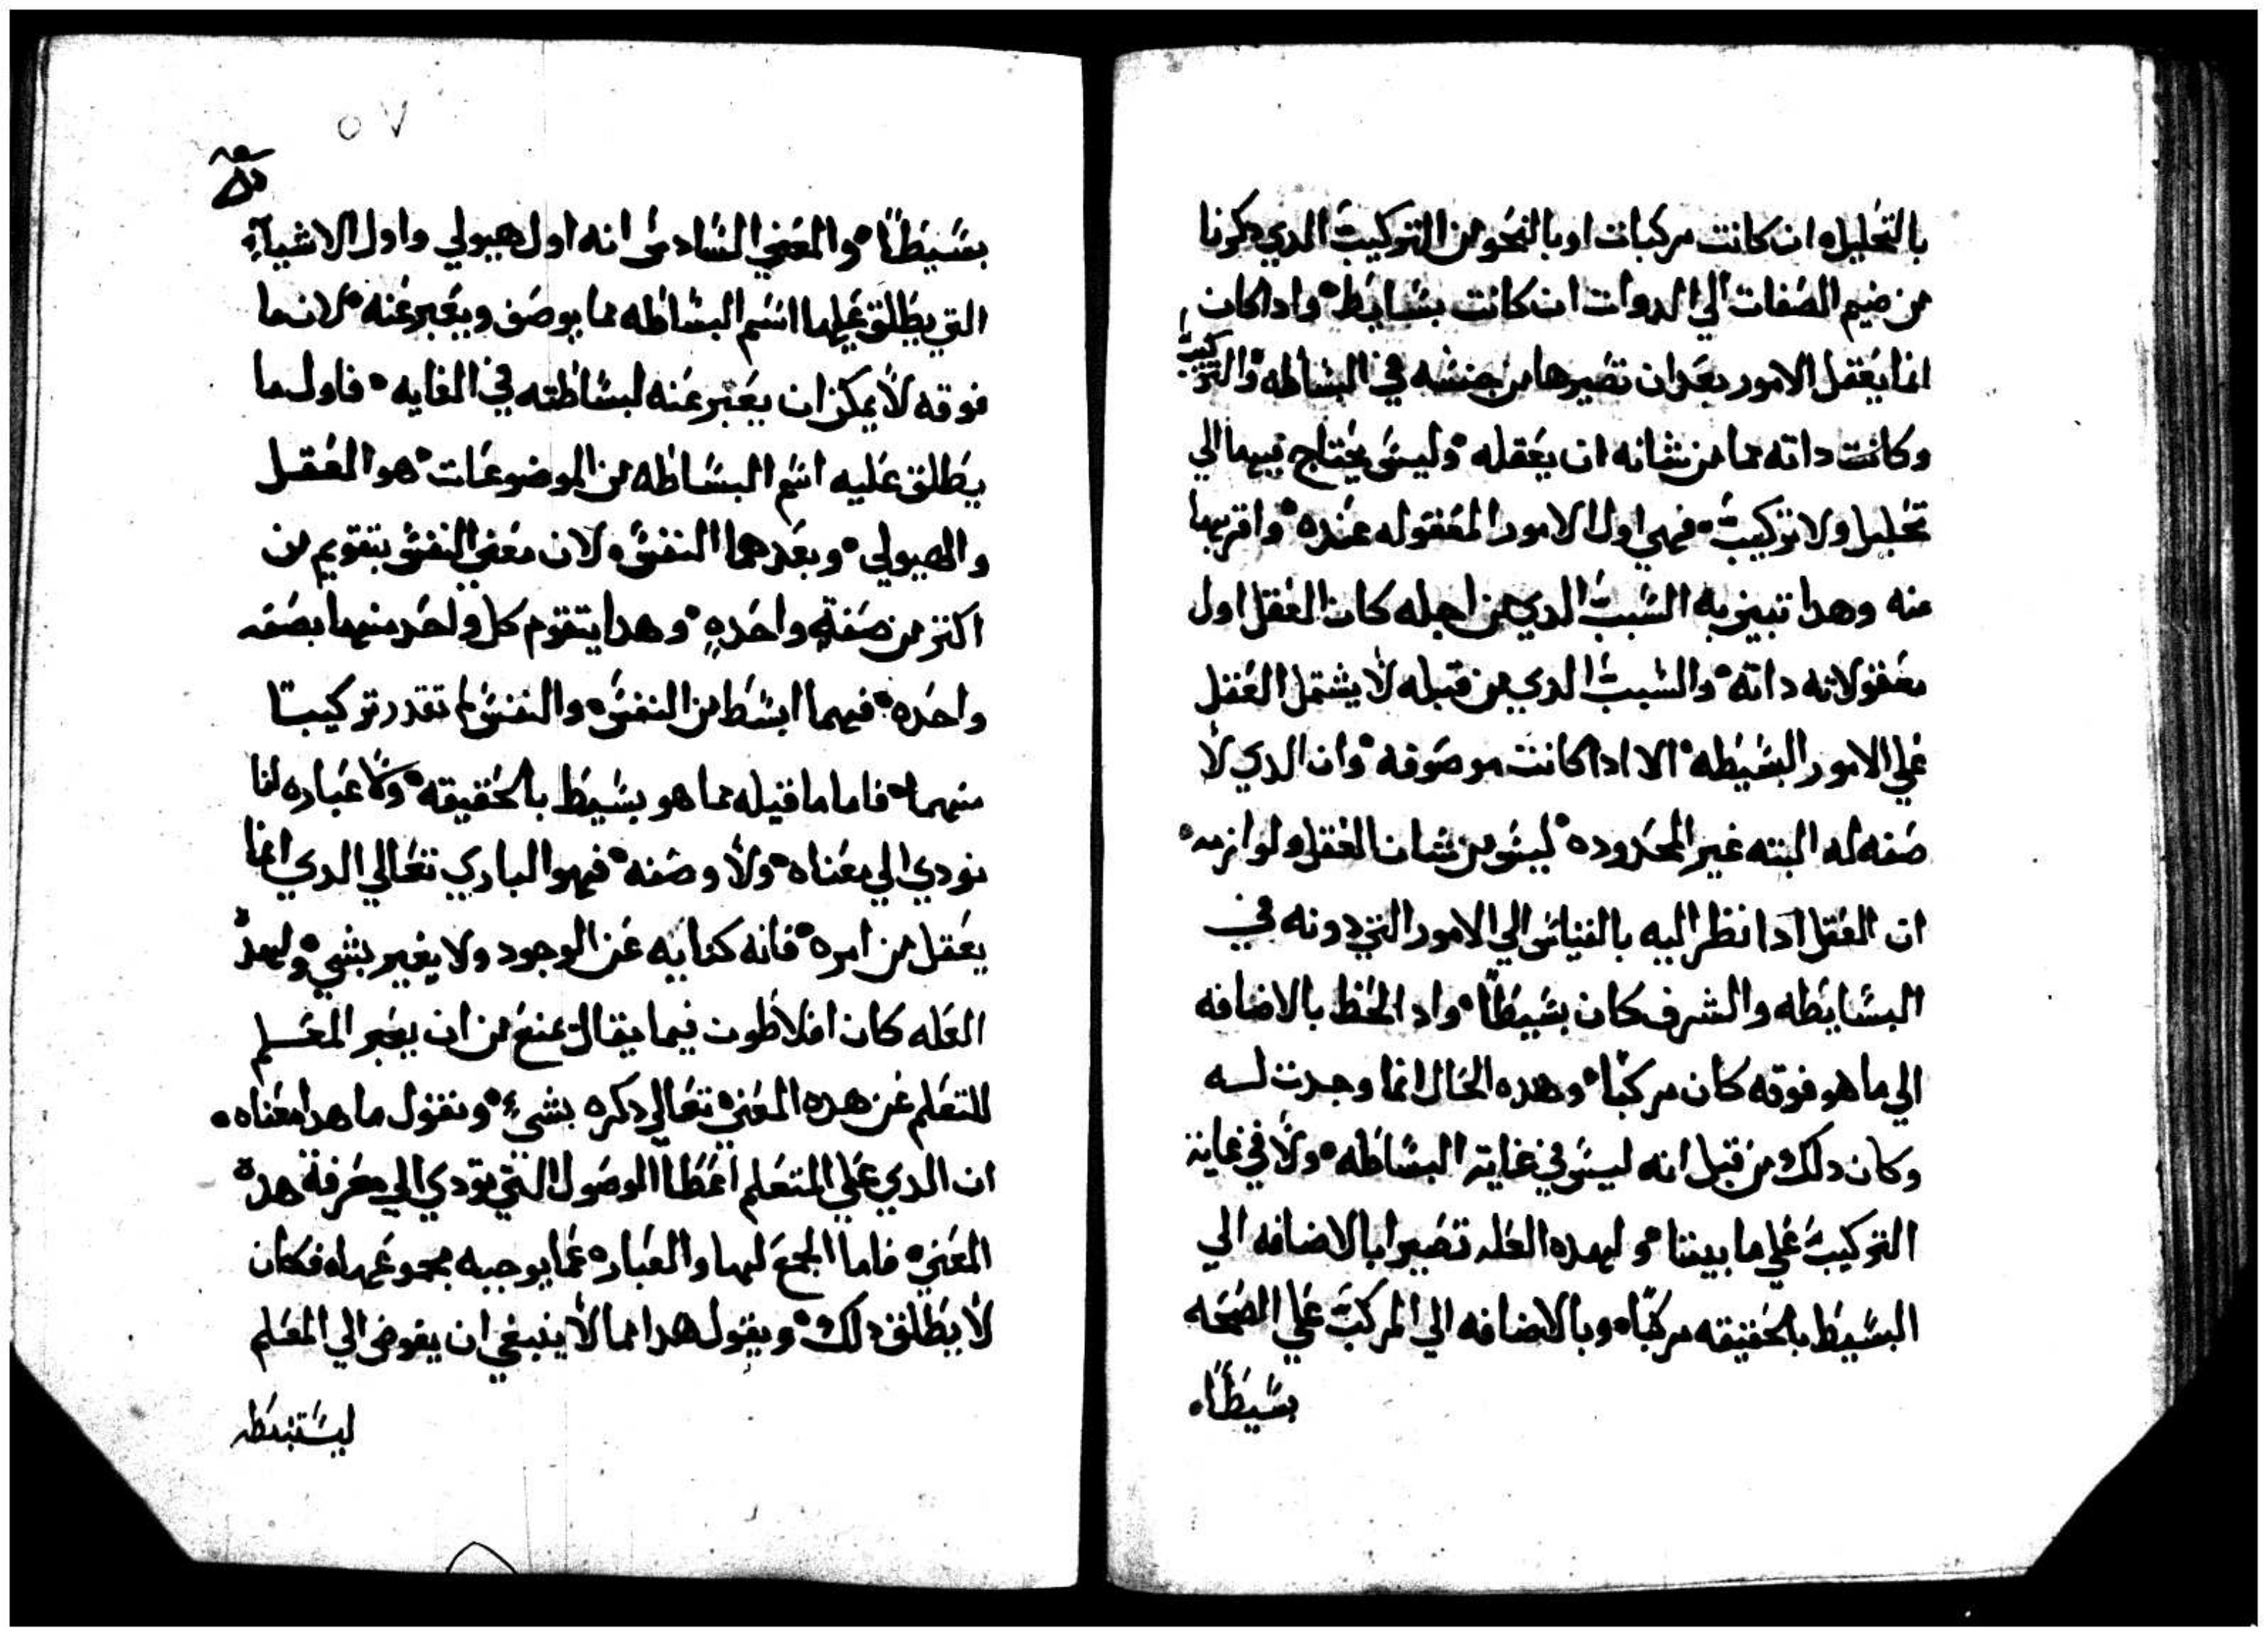 بالتحليل ان كانت مركبات او بالنحو من التركيب الدي دكرنا
من ضيم الصفات الي الدوات ان كانت بسايط وادا كان
انما يعقل الامور بعد ان تصيرها من جنسه في البساطه والتركيب
وكانت داته مما من شانه ان يعقله وليس يحتاج فيها الي
تحليل ولا تركيب فهي اول الامور المعقوله عنده واقربها
منه وهدا تبين به السبب الدي من اجله كان العقل اول
معقولاته داته والسبب الدي من قبله لا يشتمل العقل
علي الامور البسيطه الا ادا كانت موصوفه وان الدي لا
صفه له البته غير المحدوده ليس من شان العقل ولوازمه
ان العقل ادا نظر اليه بالقياس الي الامور التي دونه في
البسايطه والشرف كان بسيطا واد الحظ بالاضافه
الي ما هو فوقه كان مركبا وهده الحال انما وجدت له
وكان دلك من قبل انه ليس في غايه البساطه ولا في غاية
التركيب علي ما بيننا ولهده العله تصير ا بالاضافه الي
البسيط بالحقيقه مركبا وبالاضافه الي المركب علي الصحه
بسيطا
٥٧
بسيطا والمعني السادس انه اول هيولي واول الاشياء
التي يطلق عليها اسم البساطه مما يوصف ويعبر عنه لان ما
فوقه لا يمكن ان يعبر عنه لبساطته في الغايه فاول ما
يطلق عليه اسم البساطه من الموضوعات هو العقل
والهيولي وبعدهما النفس لان معني النفس يتقويم من
اكتر من صفة واحده وهدا يتقوم كل واحد منهما بصفه
واحده فيهما ابسط من النفس والنفس لم تقدر تركيبا
منهما فاما ما قيله مما هو بسيط بالحقيقه ولا عباره لنا
تودي الي معناه ولا وصفه فهو الباري تعالي الدي انما
يعقل من امره فانه كنايه عن الوجود ولا يغير بشي ولهده
العله كان افلاطون فيما يقال يمنع من ان يعبر المعلم
للتعلم عن هده المعني تعالي دكره بشيء ونقول ما هدا معناه
ان الدي علي المتعلم اعطا الوصول التي تودي الي معرفة هده
المعني فاما الجمع لها والعباره عما يوجبه مجموعها فكان
لا يطلق دلك ويقول هدا مما لا ينبغي ان يفوض الي المعلم
ليستنبطه